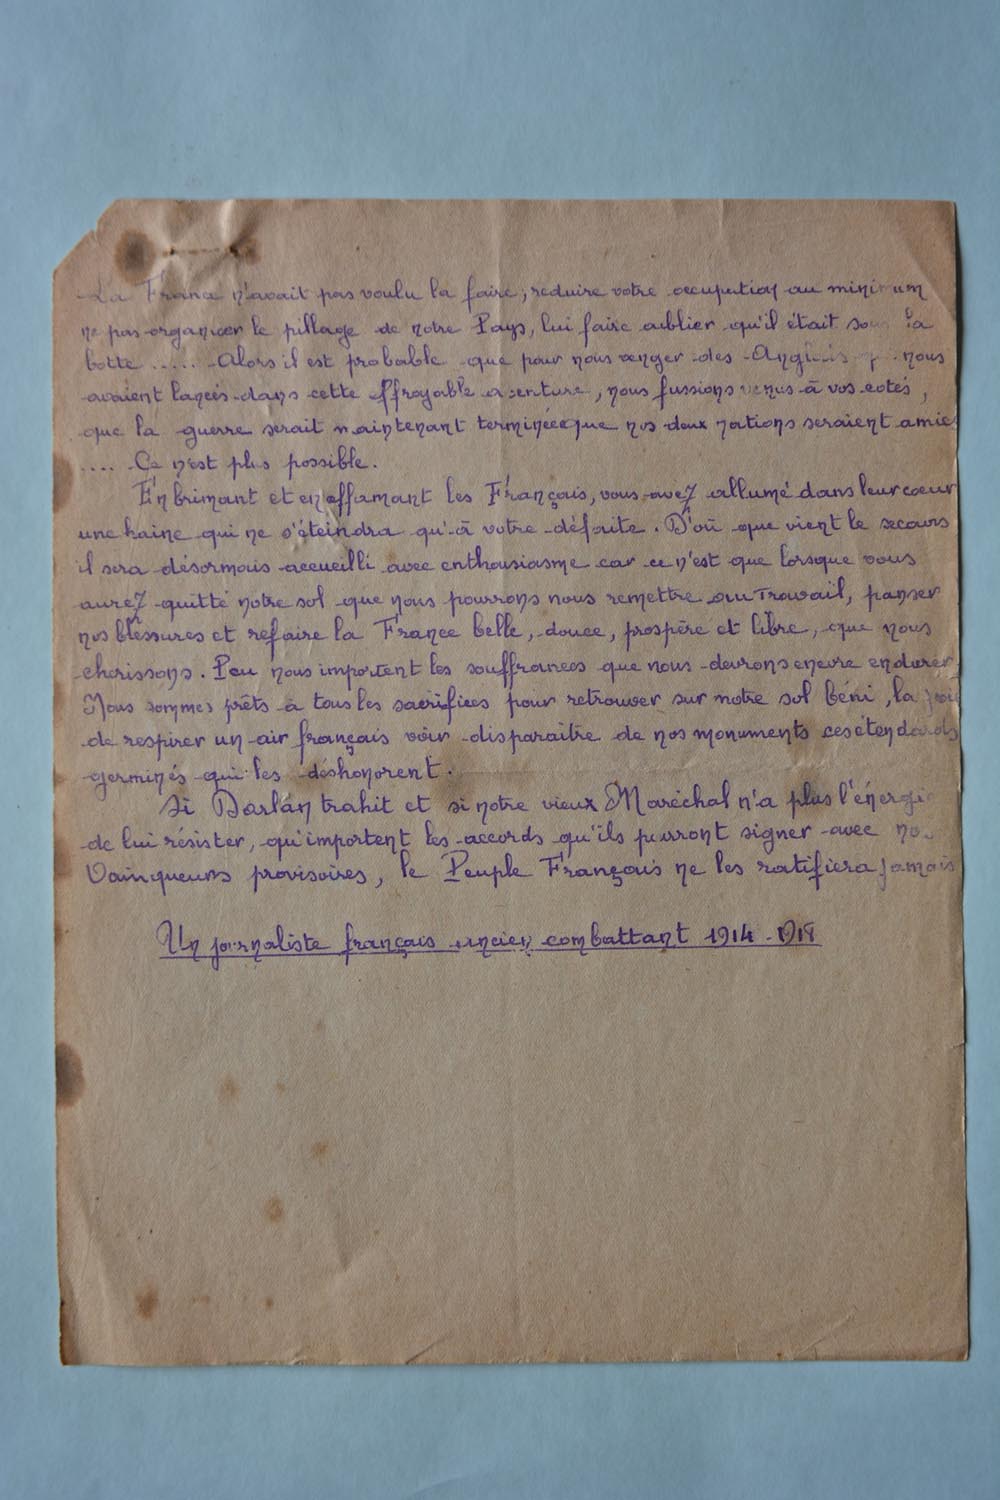 La France n'avait pas voulu la faire, reduire votre occupation au minimum
ne pas organiser le pillage de notre Pays, lui faire oublier qu'il était sous la
botte ..... Alors il est probable que pour nous venger des Anglais qui nous
avaient lancés dans cette effroyable aventure, nous fussions venus à vos cotés,
que la guerre serait maintenant terminée que nos deux nations seraient amies
.... Ce n'est plus possible.
En brimant et en affamant les Français, vous avez allumé dans leur cœur
une haine qui ne s'éteindra qu'à votre défaite. D'où que vient le secours
il sera désormais accueilli avec enthousiasme car ce n'est que lorsque vous
aurez quitté notre sol que nous pourrons nous remettre au Travail, panser
nos bléssures et refaire la France belle, douce, prospère et libre, que nous
cherissons. Peu nous importent les souffrances que nous devrons encore endurer
Nous sommes prêts à tous les sacrifices pour retrouver sur notre sol béni, la joie
de respirer un air français voir disparaitre de nos monuments ces étendards
germinés qui les déshonorent.
Si Darlan trahit et si notre vieux Maréchal n'a plus l'énergie
de lui résister, qu'importent les accords qu'ils purront signer avec nos
Vainqueurs provisoires, le Peuple Français ne les ratifiera jamais
Un journaliste français ancien combattant 1914-1918